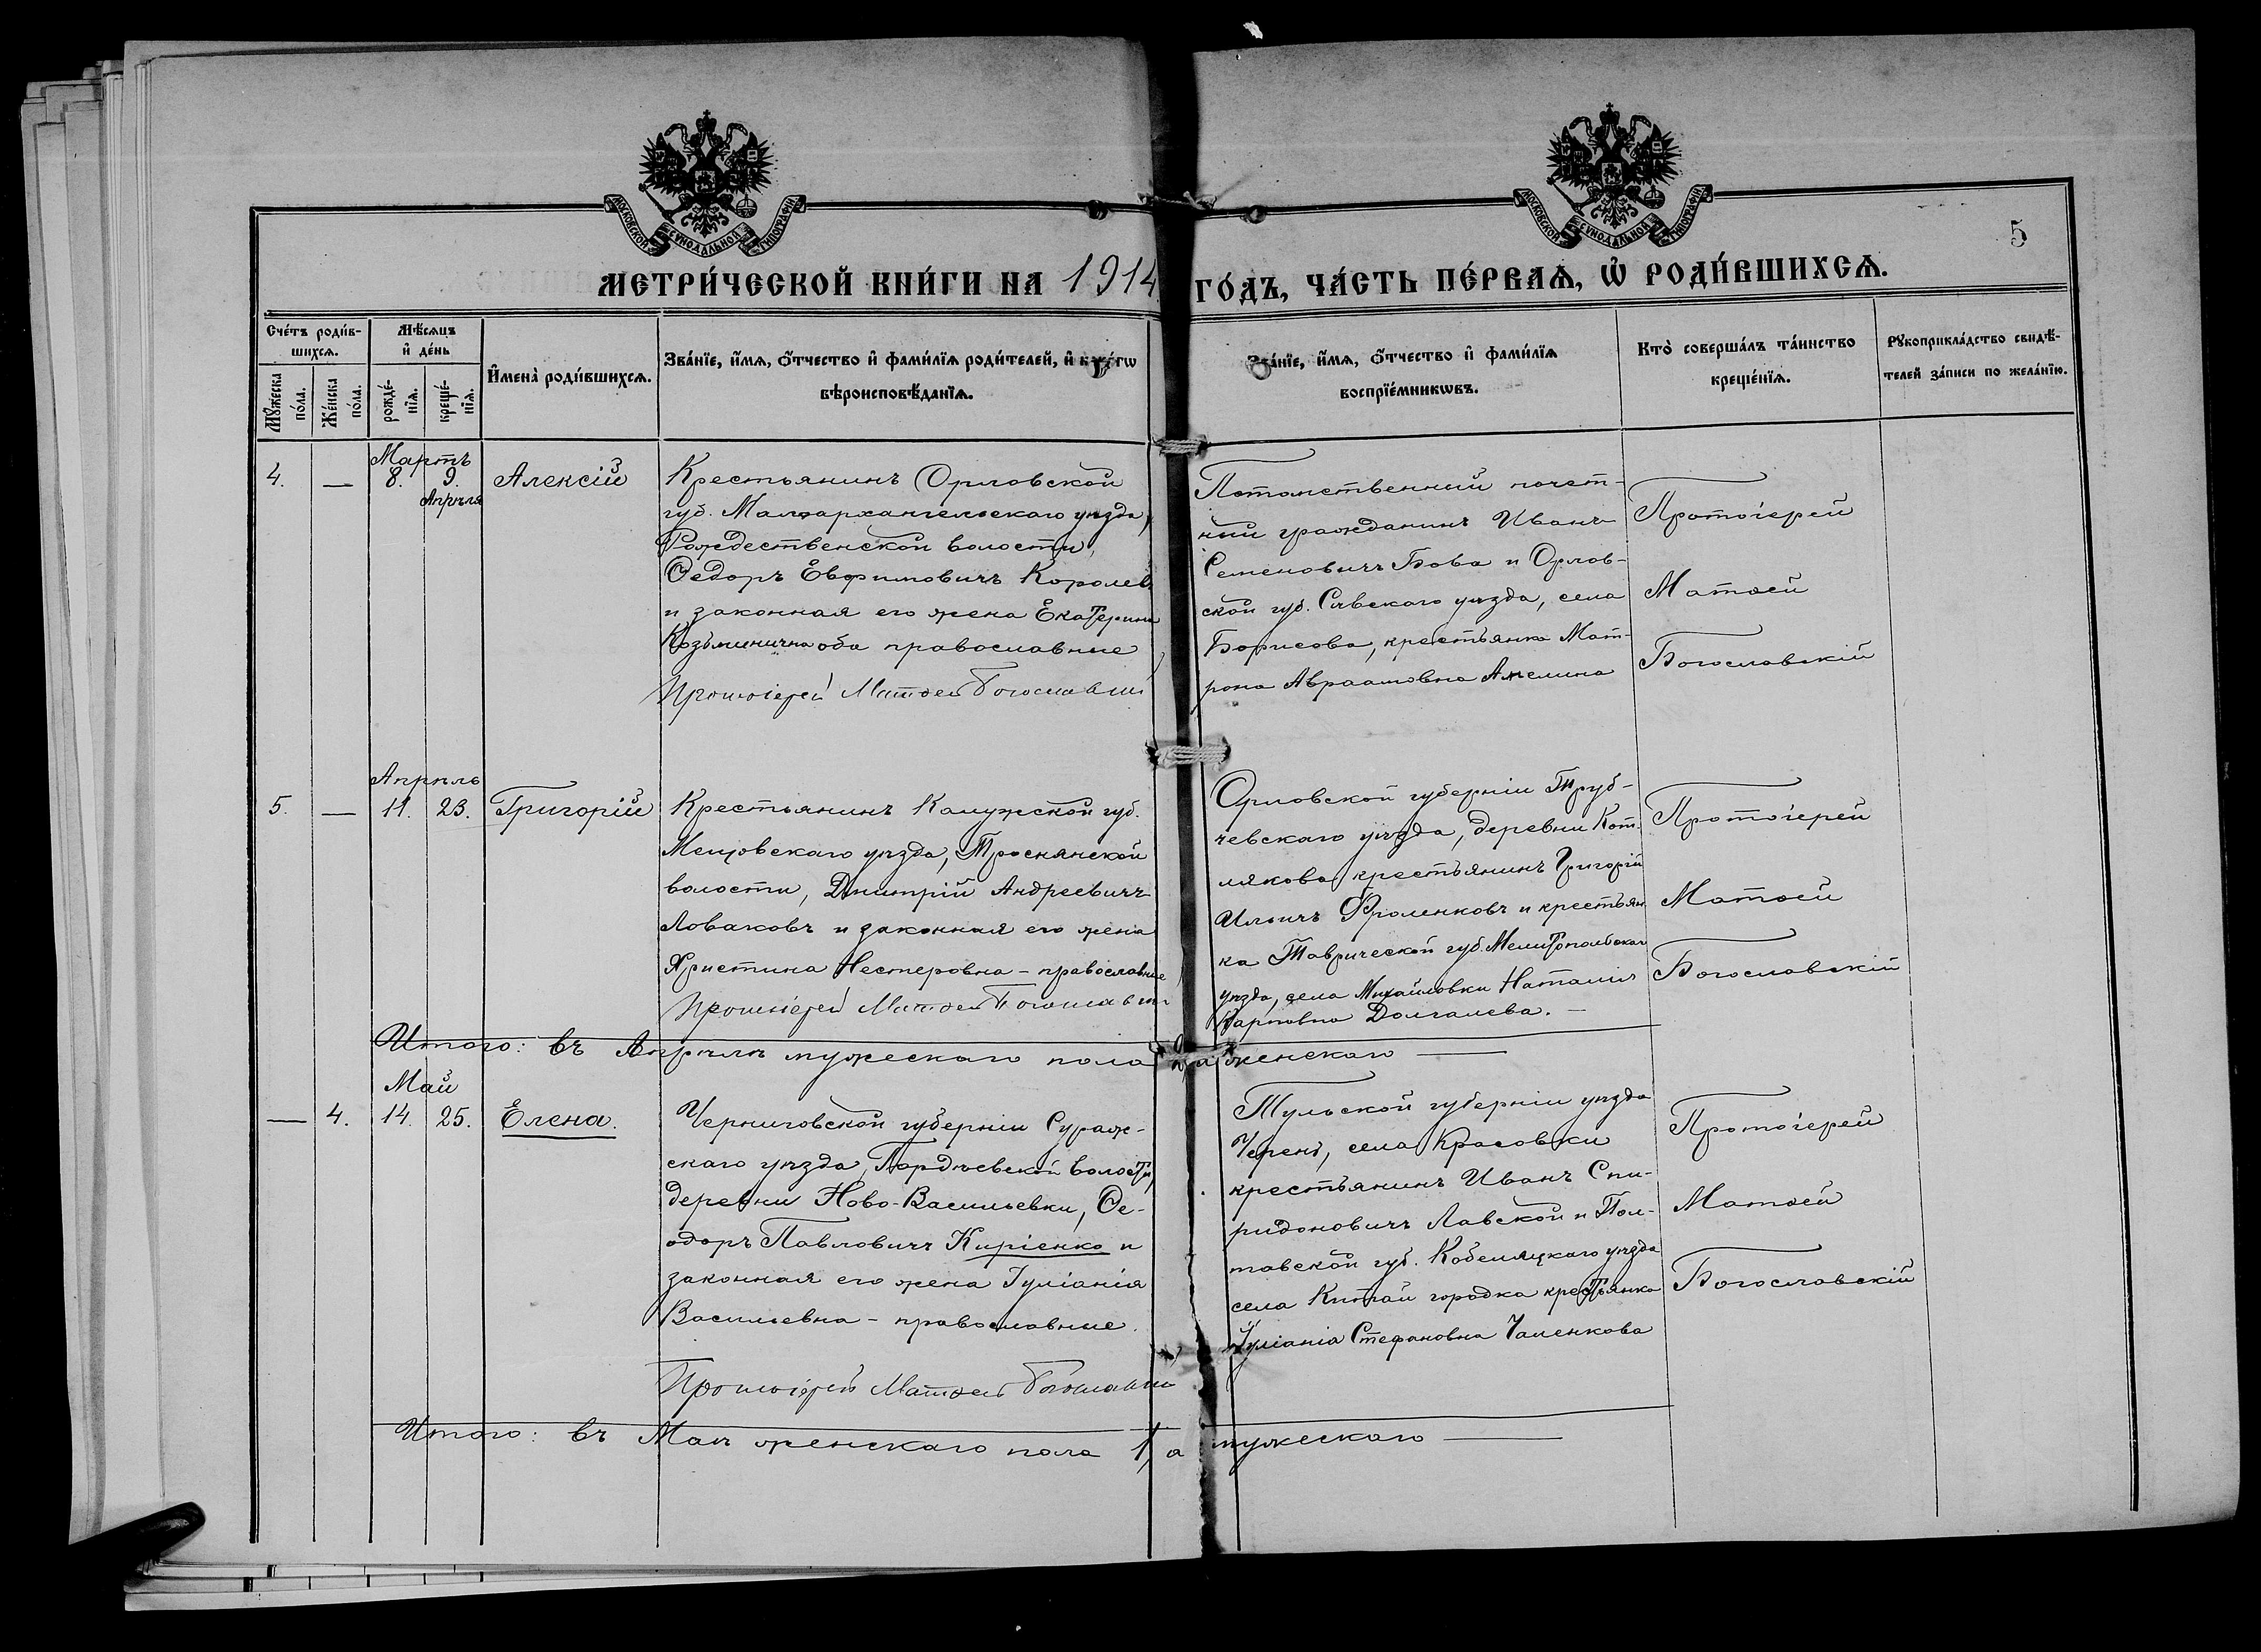 МОСКОВСКОЙ СѴНОДАЛЬНОЙ ТИПОГРАФІИ
МОСКОВСКОЙ СѴНОДАЛЬНОЙ ТИПОГРАФІИ
5
МЕТРИ́ЧЕСКОЙ КНИ́ГИ НА 1914 ГО́ДЪ, ЧА́СТЬ ПЕ́РВАѦ, Ѡ҆ РОДИ́ВШИХСѦ.
Сче́тъ роди́в-
шихсѧ.
Мꙋ́жеска по́ла.
Же́нска по́ла.
Мѣ́сѧцъ
и҆ де́нь
рожде́-
нїѧ.
креще́-
нїѧ.
И҆мена̀ роди́вшихсѧ.
Зва́нїе, и҆́мѧ, ѻ҆́тчество и҆ фами́лїѧ роди́телей, и҆ как
вѣроисповѣ́данїѧ.
Зва́нїе, и҆́мѧ, ѻ҆́тчество и҆ фами́лїѧ
воспрїе́мникѡвъ.
Кто̀ соверша́лъ та́инство
креще́нїѧ.
Рꙋкоприкла́дство свидѣ́-
телей за́писи по жела́нїю.
Мартъ
4. — 8. 9. Алексій
Апрѣля
Крестьянинъ Орловской
губ. Малоархангельскаго уѣзда,
Рождественской волости,
Ѳедоръ Евфимовичъ Королев
и законная его жена Екатерина
Козьминична оба православные
Протоіерей Матѳей Богославскій
Потомственный почет-
ный гражданинъ Иванъ
Семеновичъ Бова и Орлов-
ской губ. Сѣвскаго уѣзда, села
Борисова, крестьянка Мат-
рона Авраамовна Амелина
Протоіерей
Матѳей
Богославскій
Апрѣль
5. — 11. 23. Григорій
Крестьянинъ Калужской губ.
Мещовскаго уѣзда, Троснянской
волости, Димитрій Андреевичъ
Ловаковъ и законная его жена
Христина Нестеровна - православные
Протоіерей Матѳей Богославскій
Орловской губерніи Труб-
чевскаго уѣзда, деревни Кот-
лякова крестьянинъ Григорій
Ильичъ Фроленковъ и крестьян
ка Таврической губ. Мелитопольскаго
уѣзда, села Михайловки Наталія
Карповна Долгалева. —
Протоіерей
Матѳей
Богославскій
Итого: въ Апрѣлѣ мужескаго пола женскаго —
Май
— 4. 14. 25. Елена.
Черниговской губерніи Сураж-
скаго уѣзда, Гордѣевской волости,
деревни Ново-Васильевки, Ѳе-
одоръ Павловичъ Киріенко и
законная его жена Іуліанія
Васильевна - православные.
Протоіерей Матѳей Богославскій
Тульской губерніи уѣзда
Чернь, села Красовки
крестьянинъ Иванъ Спи-
ридоновичъ Лавской и Пол-
тавской губ. Кобеляцкаго уѣзда
села Китай городка крестьянка
Іуліанія Стефановна Чаленкова
Протоіерей
Матѳей
Богославскій
Итого: въ Маѣ женскаго пола 1, а мужескаго —